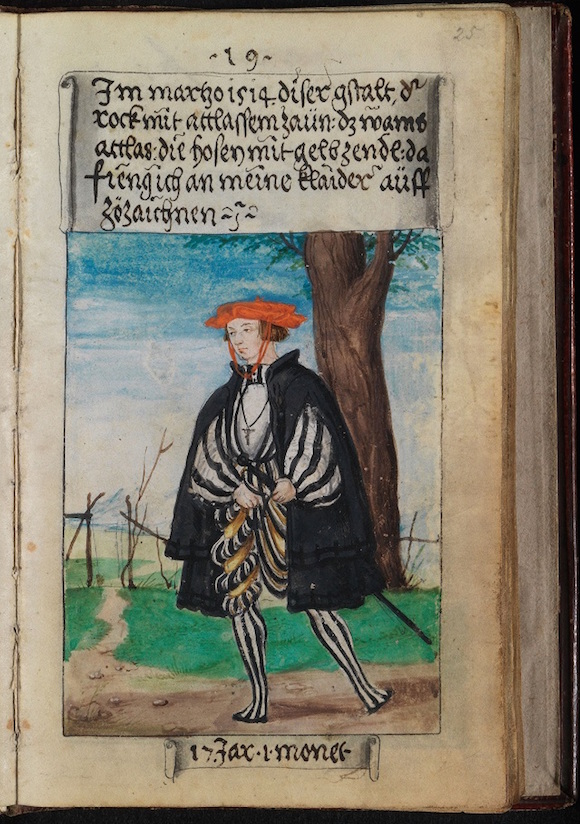 25
·19·
Im martzo 1514 diser gstalt, dr
rock mit attlassem zaün: dz wams
attlas: die hosen mit gelb zendl: da
fieng ich an meine klaider aüff
zözaichnen
17. Jar · 1 · monet